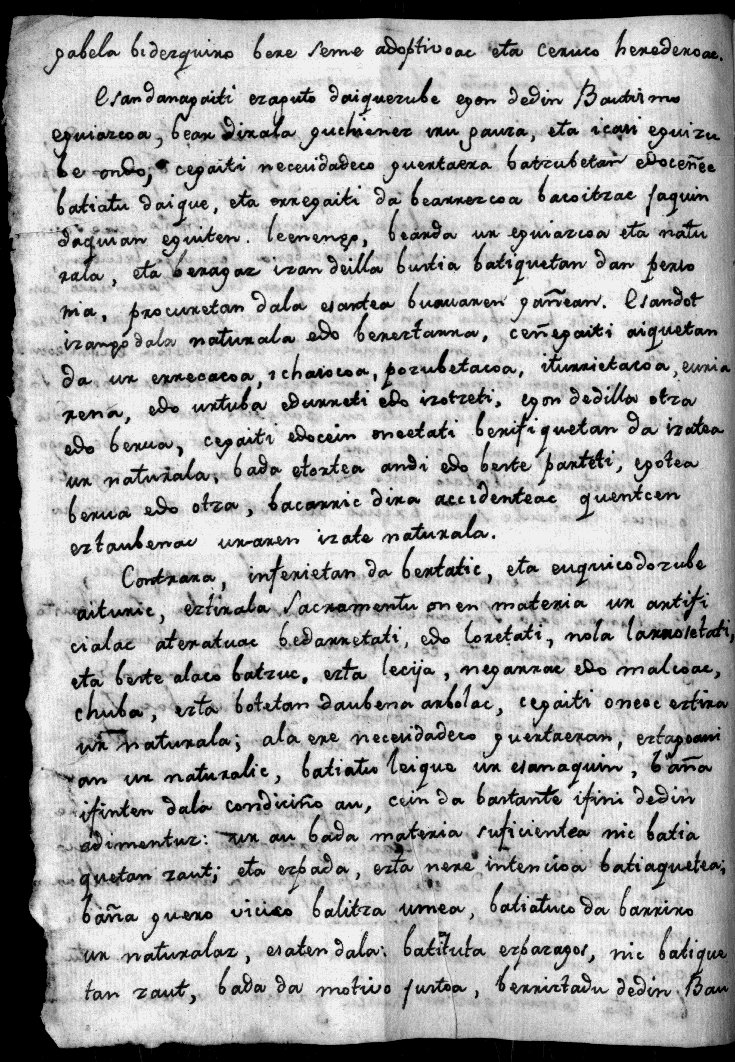 gabela bidezquiro bere seme adoptivoac eta ceruco herederoac.
Esandanagaiti ezaguto daiquezube egon dedin Bautismo
eguiazcoa, bear dirala guchienez iru gauza, eta icasi eguizu
be ondo, cegaiti necesidadeco guertaera batzubetan edoceñec
batiatu daique, eta orregaiti da bearrezcoa bacoitzac jaquin
daquian eguiten. leenengo, bearda ur eguiazcoa eta natu
rala, eta beragaz izan deilla bustia batiquetan dan perso
nia, procuretan dala esartea buruaren gañean. Esandot
izango dala naturala edo bereztarra, ceñegaiti aiquetan
da ur errecacoa, ichasocoa, pozubetacoa, iturrietacoa, euria
rena, edo urtuba edurreti edo izotzeti, egon dedilla otza
edo berua, cegaiti edocein oneetati berifiquetan da izatea
ur naturala, bada etortea andi edo beste parteti, egotea
berua edo otza, bacarric dira accidenteac quentcen
eztaubenac uraren izate naturala.
Contrara, inferietan da bertatic, eta euquicodozube
aituric, eztirala Sacramentu onen materia ur artifi
cialac ateratuac bedarretati, edo loretati, nola larrosetati,
eta beste alaco batzuc, ezta lecija, negarrac edo malcoac,
chuba, ezta botetan daubena arbolac, cegaiti oneec eztira
ur naturala; ala ere necesidadeco guertaeran, eztagoani
an ur naturalic, batiatu leique ur esanaquin, baña
ifinten dala condiciño au, cein da bastante ifini dedin
adimentuz: ur au bada materia suficientea nic batia
quetan zaut; eta ezpada, ezta nere intencioa batiaquetea;
baña guero vicico balitza umea, batiatuco da barriro
ur naturalaz, esaten dala: batituta ezpazagoz, nic batique
tan zaut, bada da motivo justoa, berriztadu dedin Bau